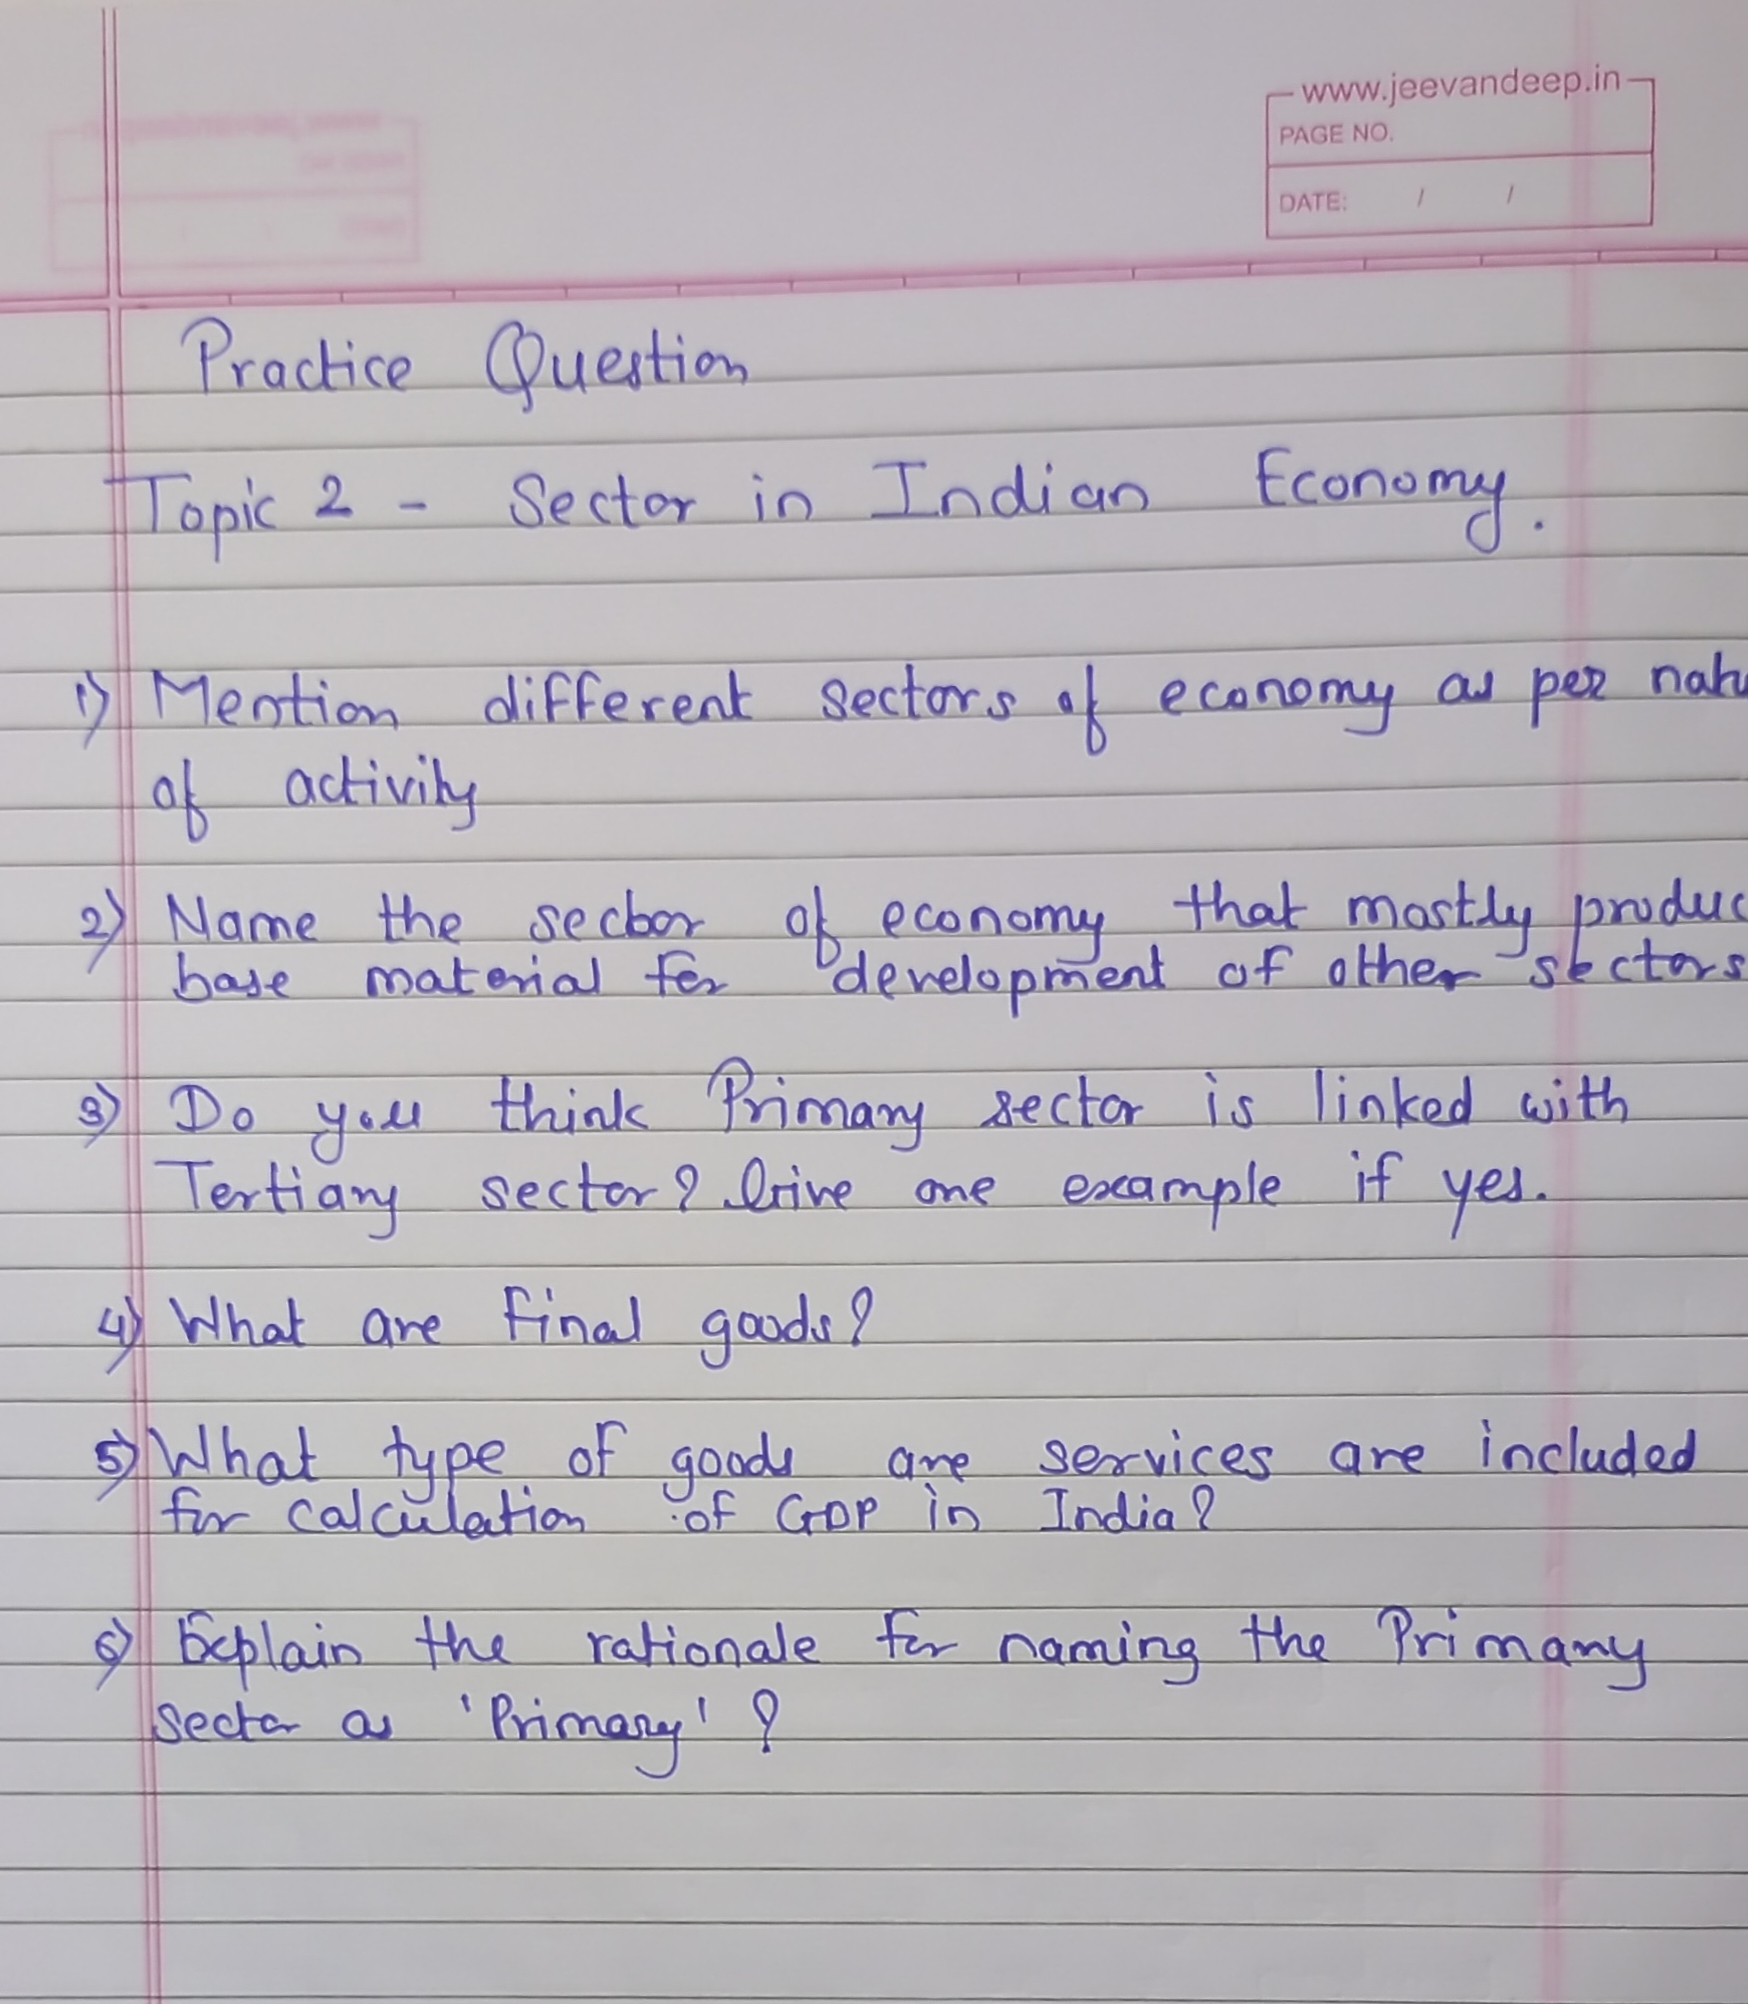 www.jeevandeep.in
PAGE NO.
DATE: / /
Practice Question
Topic 2 - Sector in Indian Economy.
1) Mention different sectors of economy as per natu
of activity
2) Name the sector of economy that mostly produc
base material for development of other sectors
3) Do you think Primary sector is linked with
Tertiary sector? Give one example if yes.
4) What are final goods?
5) What type of goods are services are included
for calculation of GDP in India?
6) Explain the rationale for naming the Primary
sector as 'Primary' ?